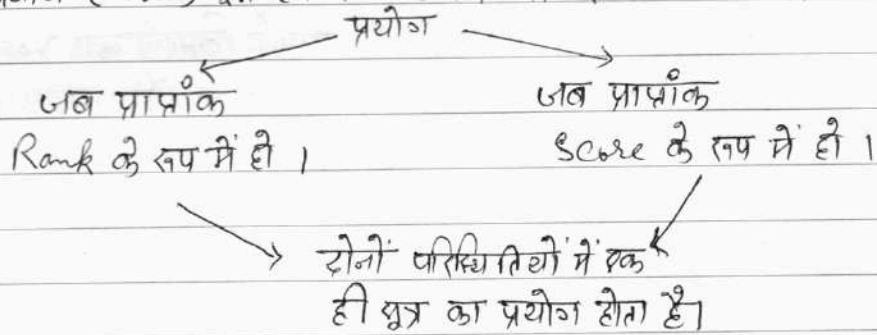 प्रयोग
जब प्राप्तांक
Rank के रूप में हो ।
जब प्राप्तांक
Score के रूप में हो ।
दोनों परिस्थितियों में एक
ही सूत्र का प्रयोग होता है।